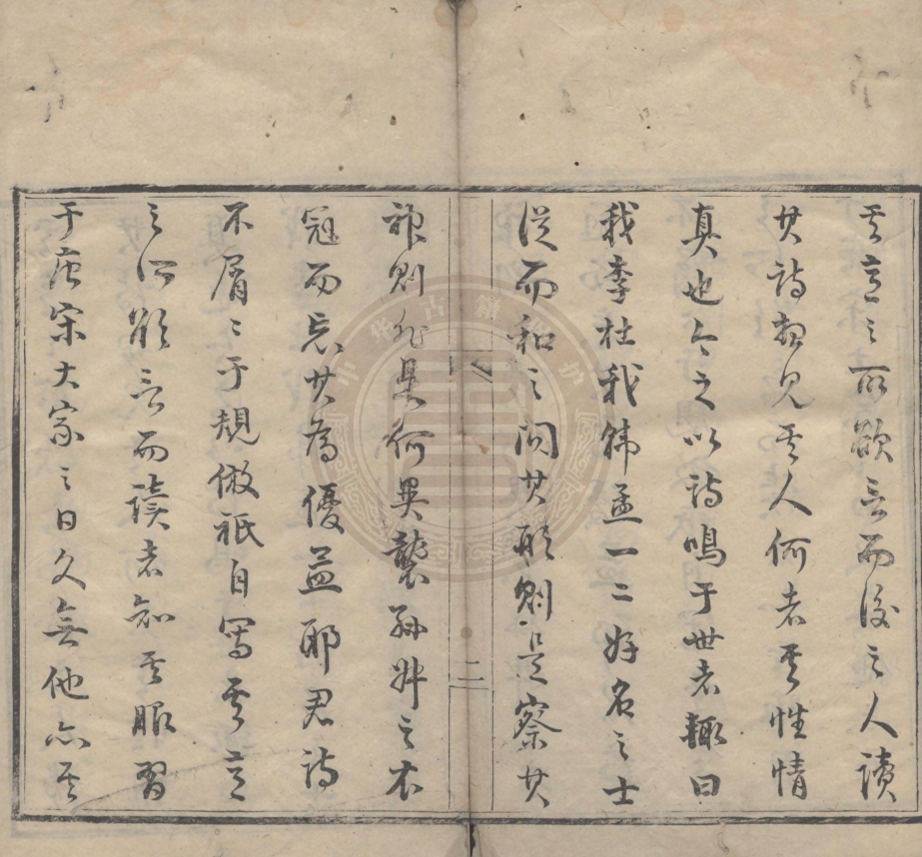 其意之所欲言而後之人讀
其詩想見其人何者其性情
真也今之以詩鳴于世者輒曰
我李杜我韓孟一二好名之士
從而和之問其形則是察其
神則非是何異襲孫叔之衣
冠而忘其為優孟耶君詩
不屑〻于規倣祇自寫其意
之所欲言而讀者知其服習
于唐宋大家之日久無他亦其
二